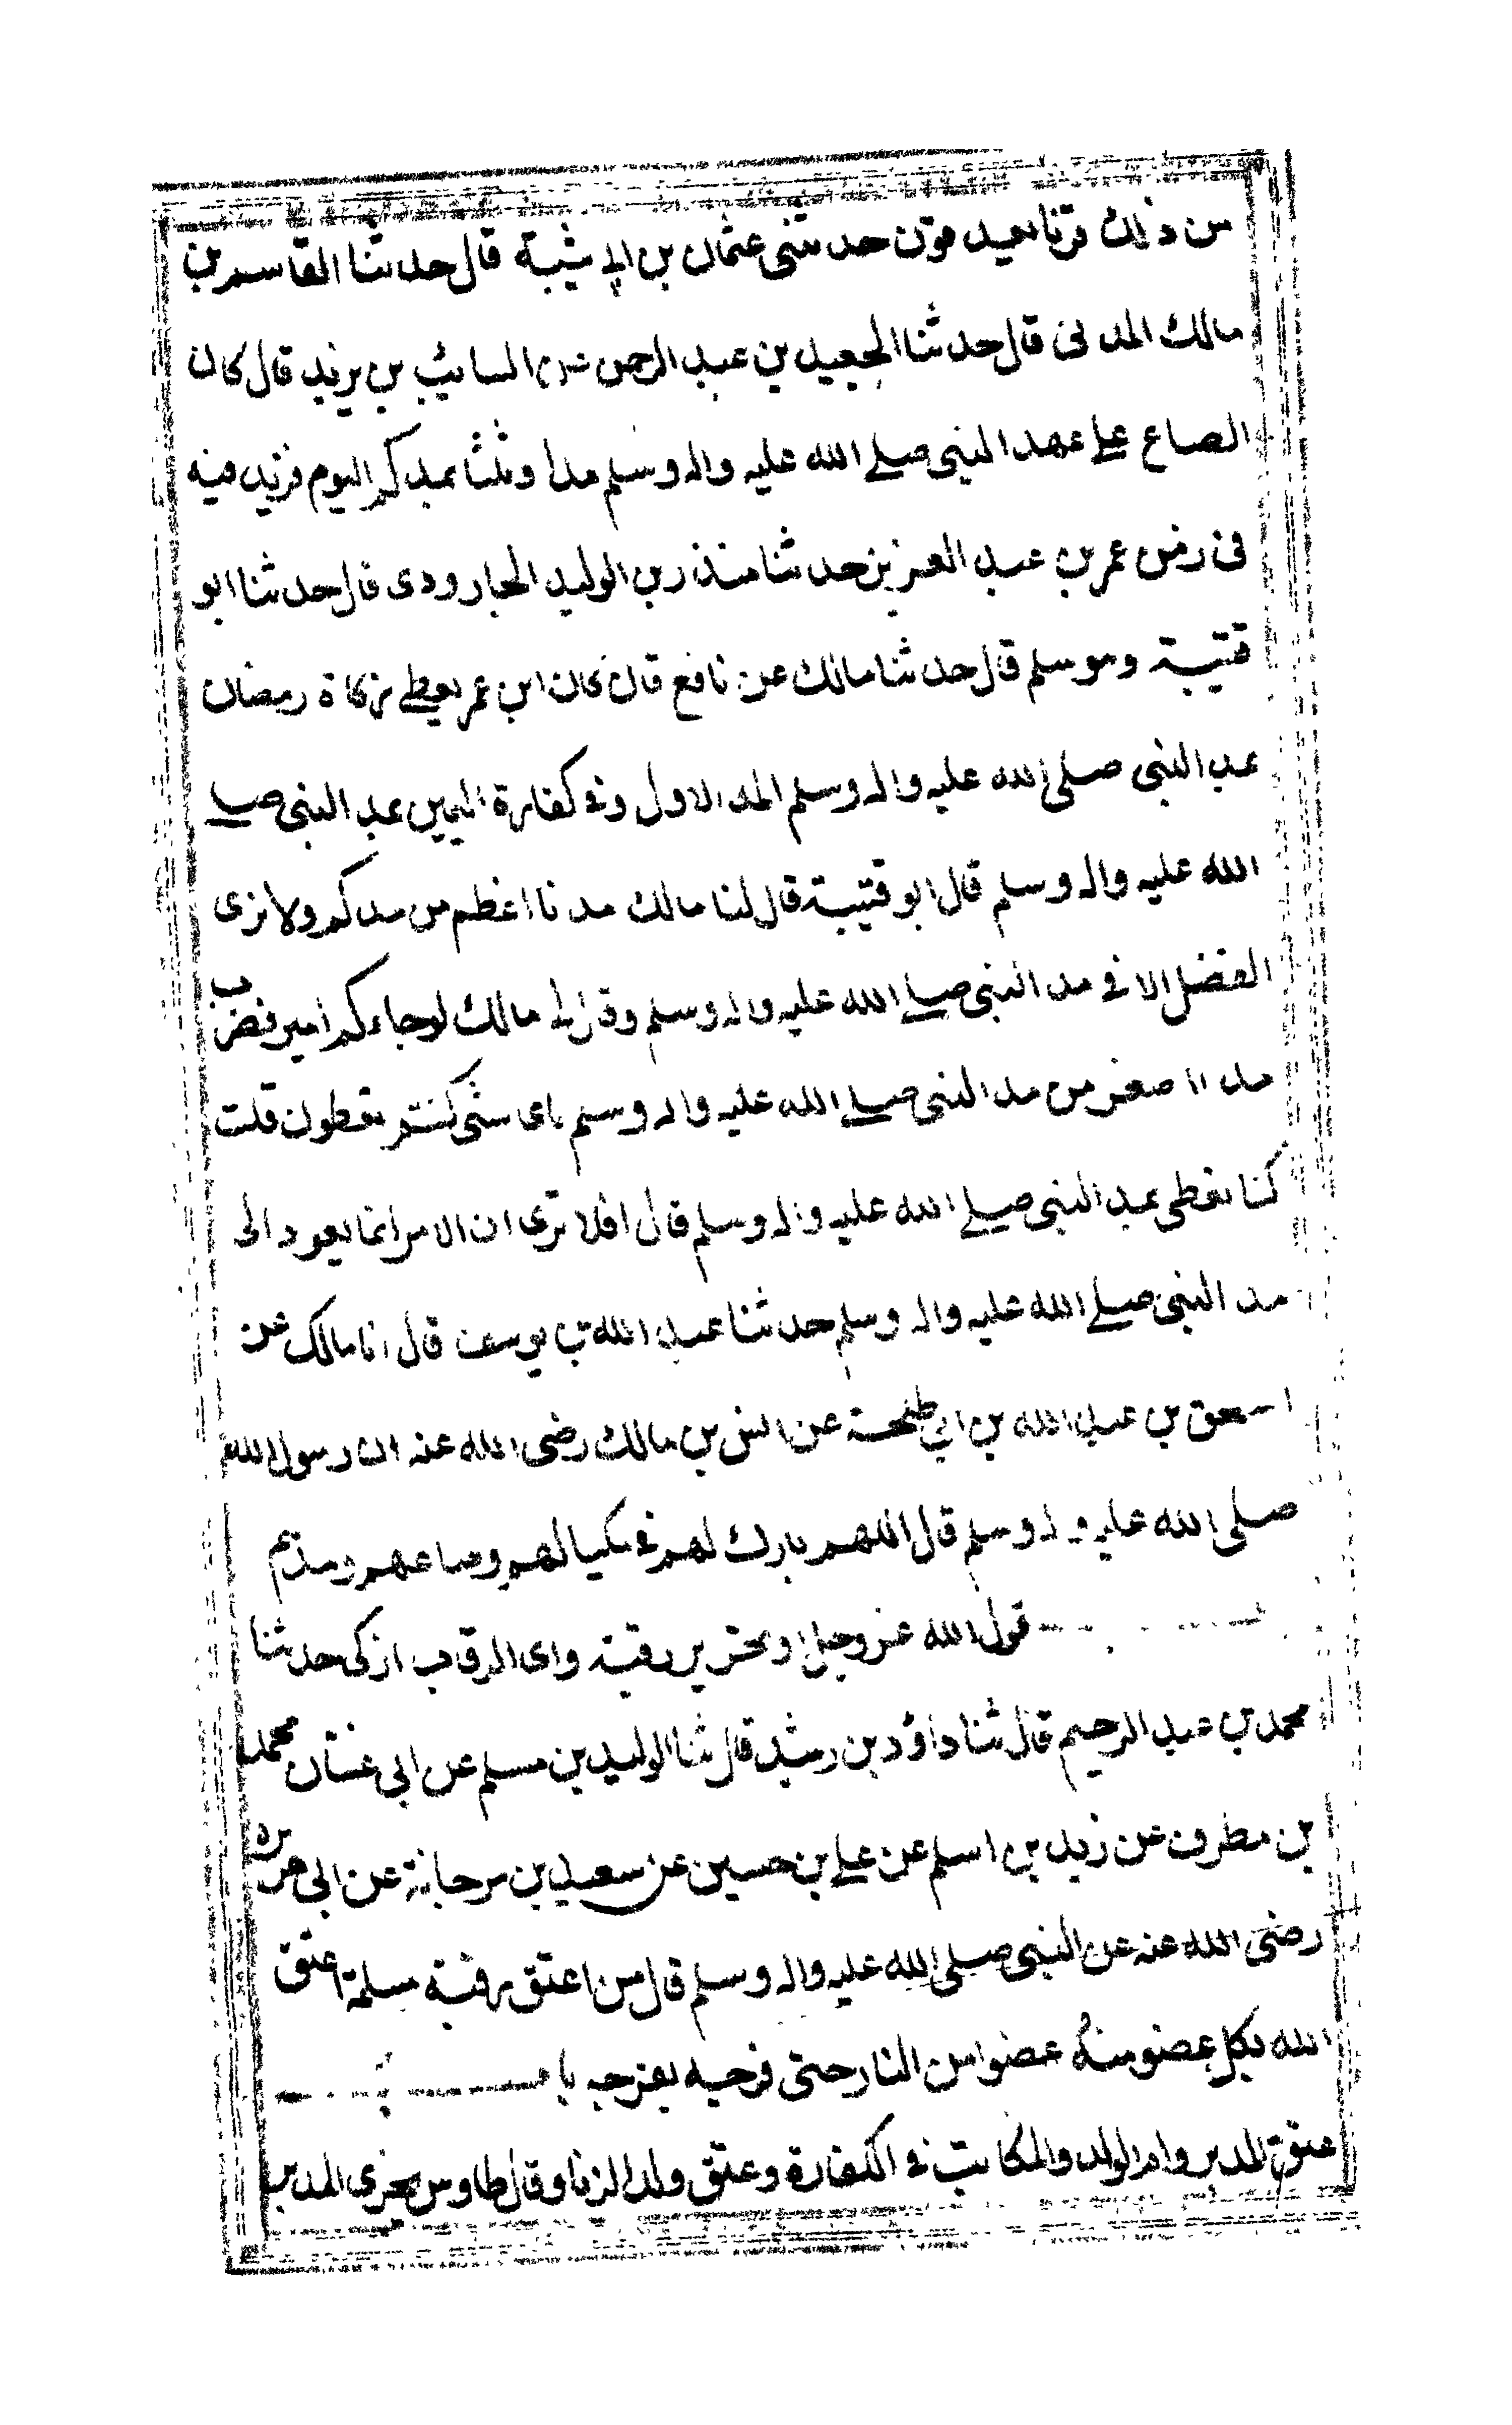 من ذلك قرنا بعد قرن حدثنى عثمان بن ابى شيبة قال حدثنا القاسم بن
مالك المدنى قال حدثنا الجعيد بن عبد الرحمن السائب بن يزيد قال كان
الصاع على عهد النبى صلى الله عليه واله وسلم مدا وثلثا بمدكم اليوم فزيد فيه
فى زمن عمر بن عبد العزيز حدثنا منذر بن الوليد الجارودى قال حدثنا ابو
قتيبة وهو سلم قال حدثنا مالك عن نافع قال كان ابن عمر يعطى زكاة رمضان
بمد النبى صلى الله عليه واله وسلم المد الاول وفى كفارة اليمين بمد النبى صلى
الله عليه واله وسلم قال ابو قتيبة قال لنا مالك مدنا اعظم من مدكم ولا نرى
الفضل الا فى مد النبى صلى الله عليه واله وسلم وقال لى مالك لو جاءكم امير فضرب
مدا اصغر من مد النبى صلى الله عليه واله وسلم باى شئ كنتم تعطون قلت
كنا نعطى بمد النبى صلى الله عليه واله وسلم قال افلا ترى ان الامر انما يعود الى
مد النبى صلى الله عليه واله وسلم حدثنا عبد الله بن يوسف قال انا مالك عن
اسحق بن عبد الله بن ابي طلحة عن انس بن مالك رضى الله عنه ان رسول الله
صلى الله عليه واله وسلم قال اللهم بارك لهم فى مكيالهم وصاعهم ومدهم
قول الله عز وجل او تحرير رقبة واى الرقاب ازكى حدثنا
محمد بن عبد الرحيم قال ثنا داؤد بن رشيد قال ثنا الوليد بن مسلم عن ابى غسان محمد
بن مطرف عن زيد بن اسلم عن على بن حسين عن سعيد بن مرجانة عن ابى هريرة
رضى الله عنه عن النبى صلى الله عليه واله وسلم قال من اعتق رقبة مسلمة اعتق
الله بكل عضو منه عضوا من النار حتى فرجه بفرجه باب
عتق المدبر وام الولد والمكاتب فى الكفارة وعتق ولد الزنا وقال طاوس يجزى المدبر